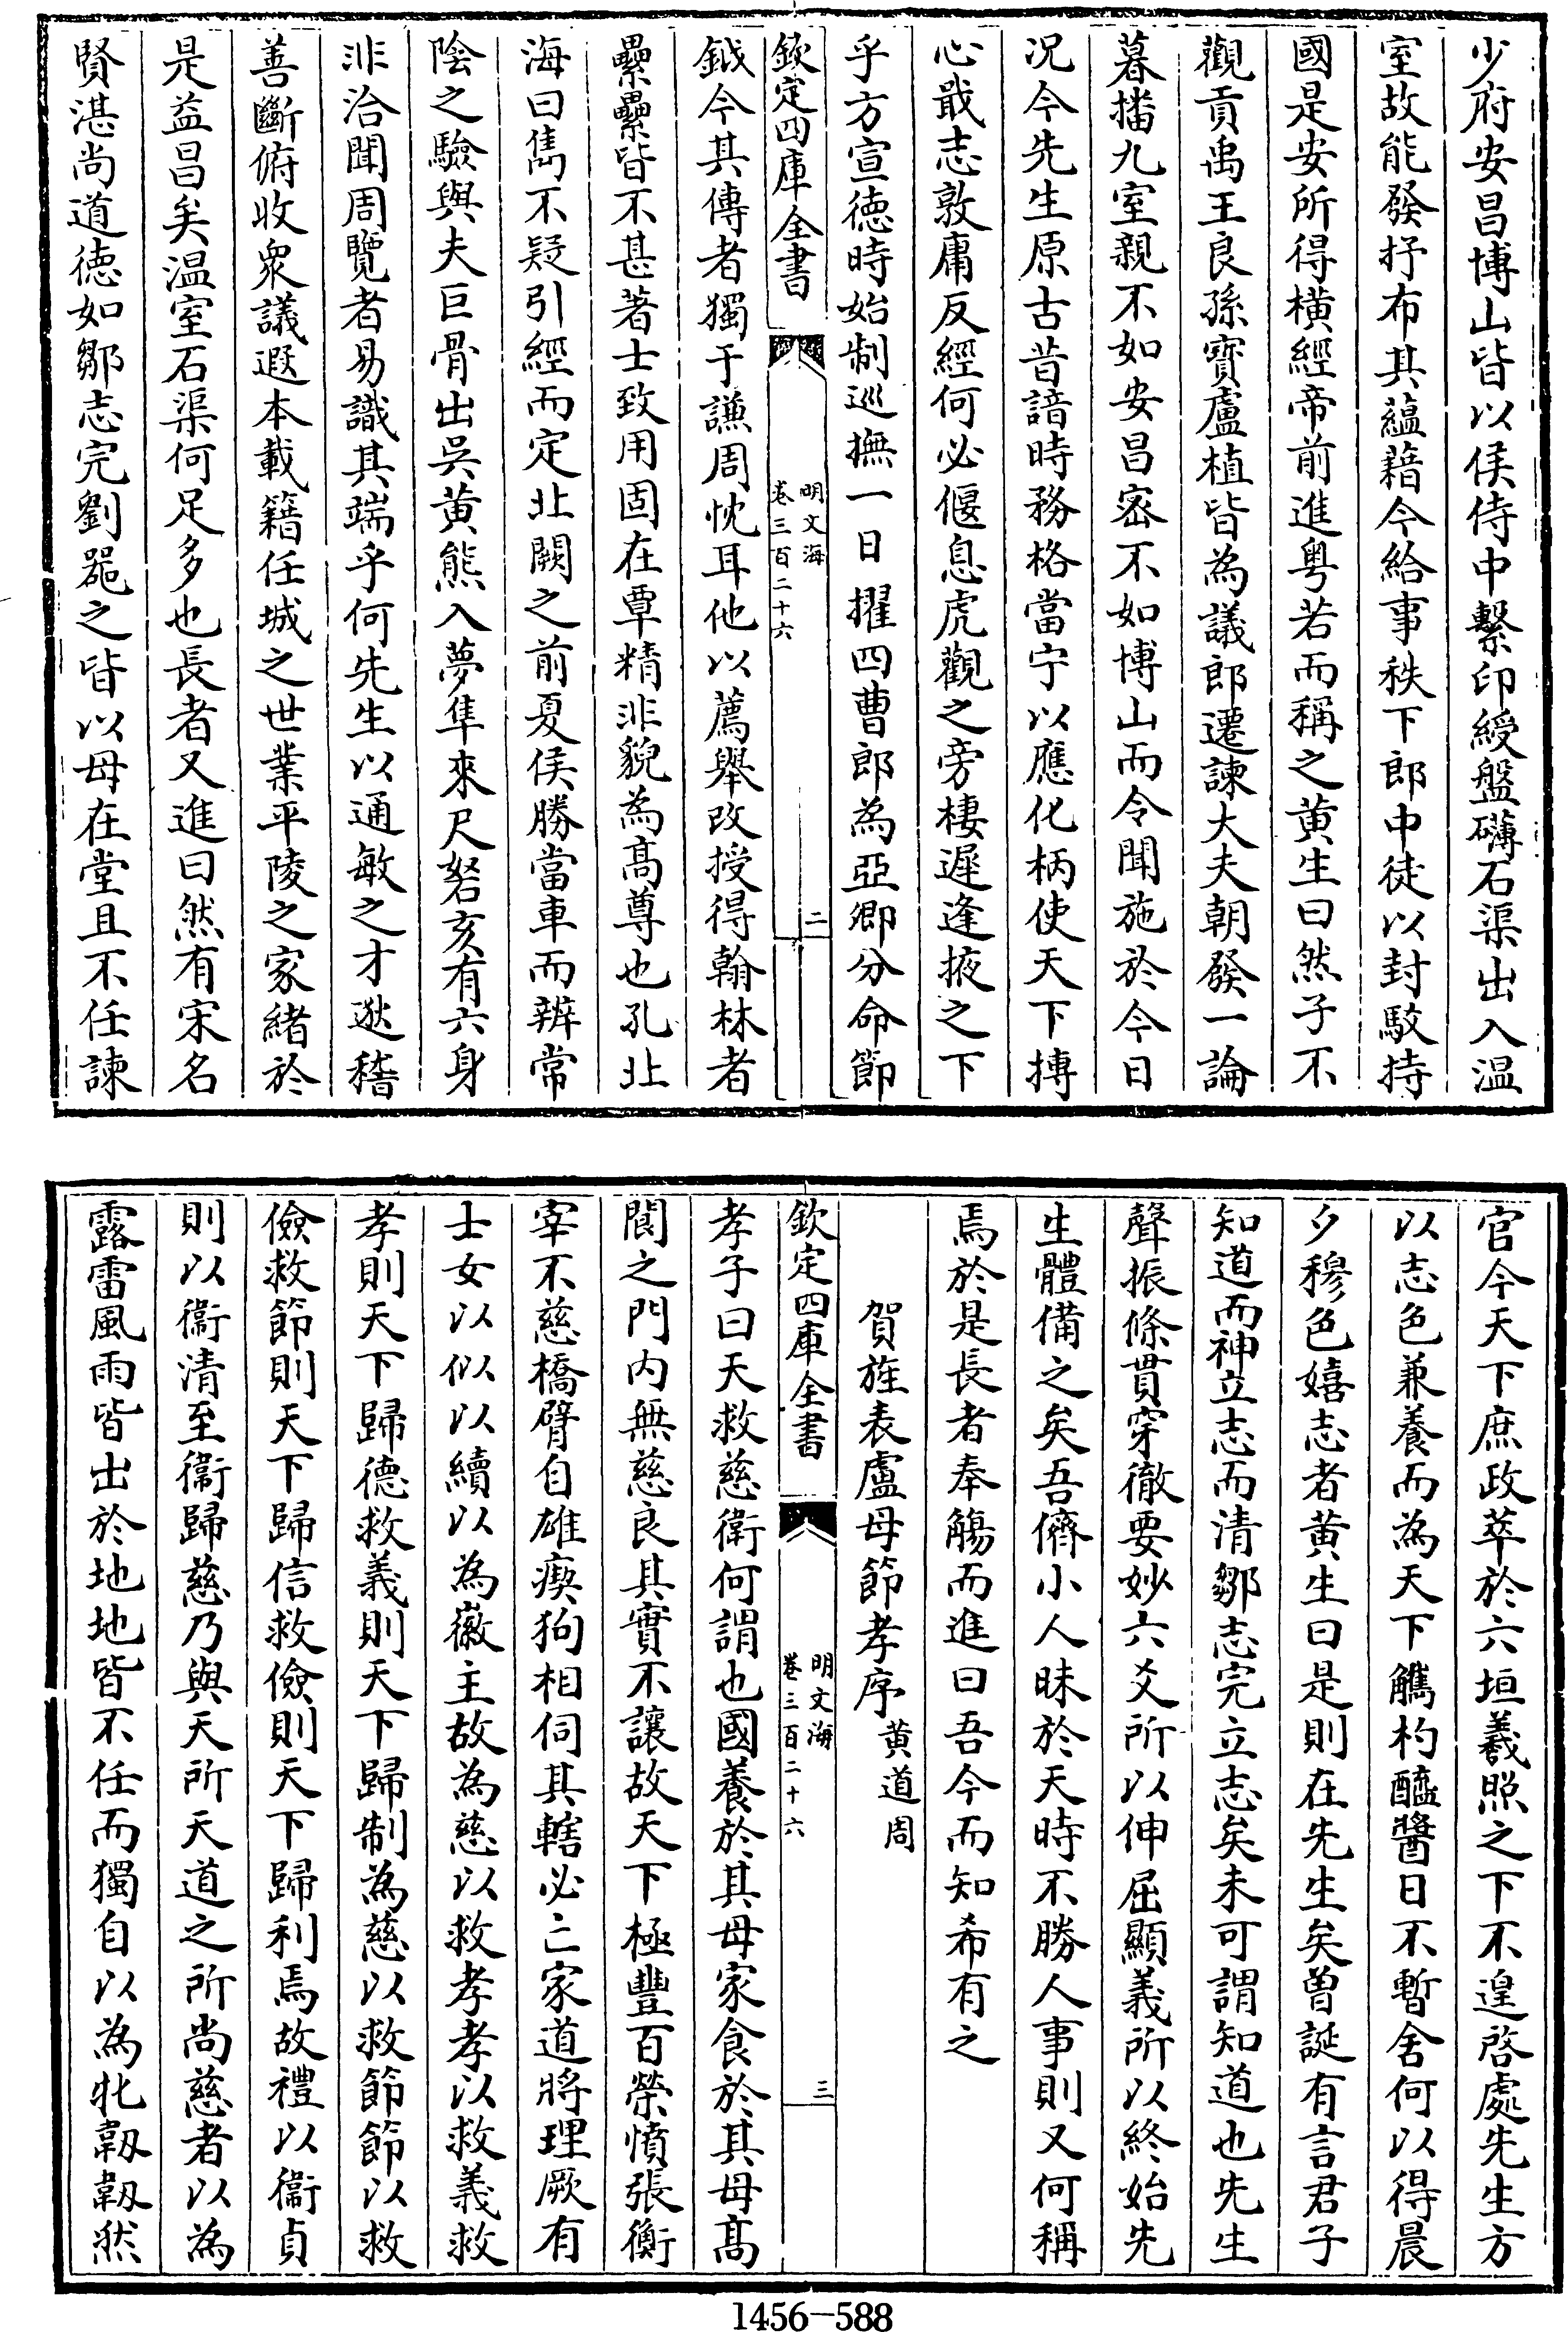 少府安昌博山皆以侯侍中繫印綬盤礴石渠出入温
室故能發抒布其藴藉今給事秩下郎中徒以封駮持
國是安所得橫經帝前進粤若而稱之黄生曰然子不
觀貢禹王良孫寳盧植皆為議郎遷諫大夫朝發一論
暮播九室親不如安昌宻不如博山而令聞施於今日
况今先生原古昔諳時務格當宁以應化柄使天下摶
心戢志敦庸反經何必偃息虎觀之旁棲遲逢掖之下
乎方宣徳時始制巡撫一日擢四曹郎為亞卿分命節
欽定四庫全書
明文海
卷三百二十六
二
鉞今其傳者獨于謙周忱耳他以薦舉改授得翰林者
纍纍皆不甚著士致用固在覃精非貌為髙尊也孔北
海曰雋不疑引經而定北闕之前夏侯勝當車而辨常
陰之驗與夫巨骨出吳黄熊入夢隼來尺砮亥有六身
非洽聞周覽者易識其端乎何先生以通敏之才逖稽
善斷俯收衆議遐本載籍任城之世業平陵之家緒於
是益昌矣温室石渠何足多也長者又進曰然有宋名
賢湛尚道徳如鄒志完劉噐之皆以母在堂且不任諫
官今天下庶政萃於六垣羲照之下不遑啓處先生方
以志色兼養而為天下觹杓醯醬日不暫舍何以得晨
夕穆色嬉志者黄生曰是則在先生矣曽誕有言君子
知道而神立志而清鄒志完立志矣未可謂知道也先生
聲振條貫穿徹要妙六爻所以伸屈顯義所以終始先
生體備之矣吾儕小人昧於天時不勝人事則又何稱
焉於是長者奉觴而進曰吾今而知希有之
賀旌表盧母節孝序 黄道周
欽定四庫全書
明文海
卷三百二十六
三
孝子曰天救慈衛何謂也國養於其母家食於其母髙
閬之門内無慈良其實不讓故天下極豐百榮憤張衡
宰不慈橋臂自雄瘈狗相伺其轄必亡家道將理厥有
士女以似以續以為徽主故為慈以救孝孝以救義救
孝則天下歸德救義則天下歸制為慈以救節節以救
儉救節則天下歸信救儉則天下歸利焉故禮以衞貞
則以衞清至衞歸慈乃與天所天道之所尚慈者以為
露雷風雨皆出於地地皆不任而獨自以為牝韌韌然
1456-588